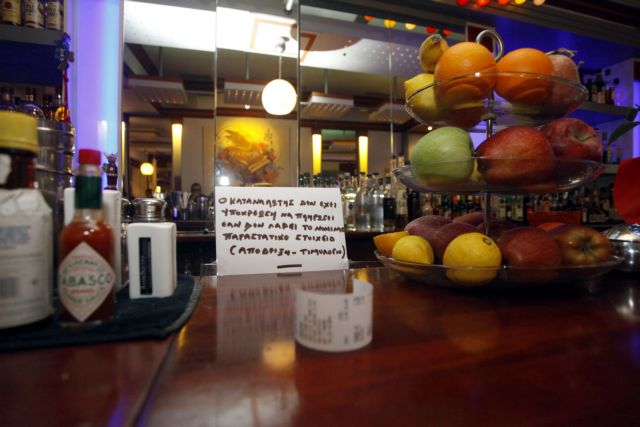 Ο ΚΑΤΑΝΑΛΩΤΗΣ ΔΕΝ ΕΧΕΙ
ΥΠΟΧΡΕΩΣΗ ΝΑ ΠΛΗΡΩΣΕΙ
ΕΑΝ ΔΕΝ ΛΑΒΕΙ ΤΟ ΝΟΜΙΜΟ
ΠΑΡΑΣΤΑΤΙΚΟ ΣΤΟΙΧΕΙΟ
(ΑΠΟΔΕΙΞΗ - ΤΙΜΟΛΟΓΙΟ)
TABASCO